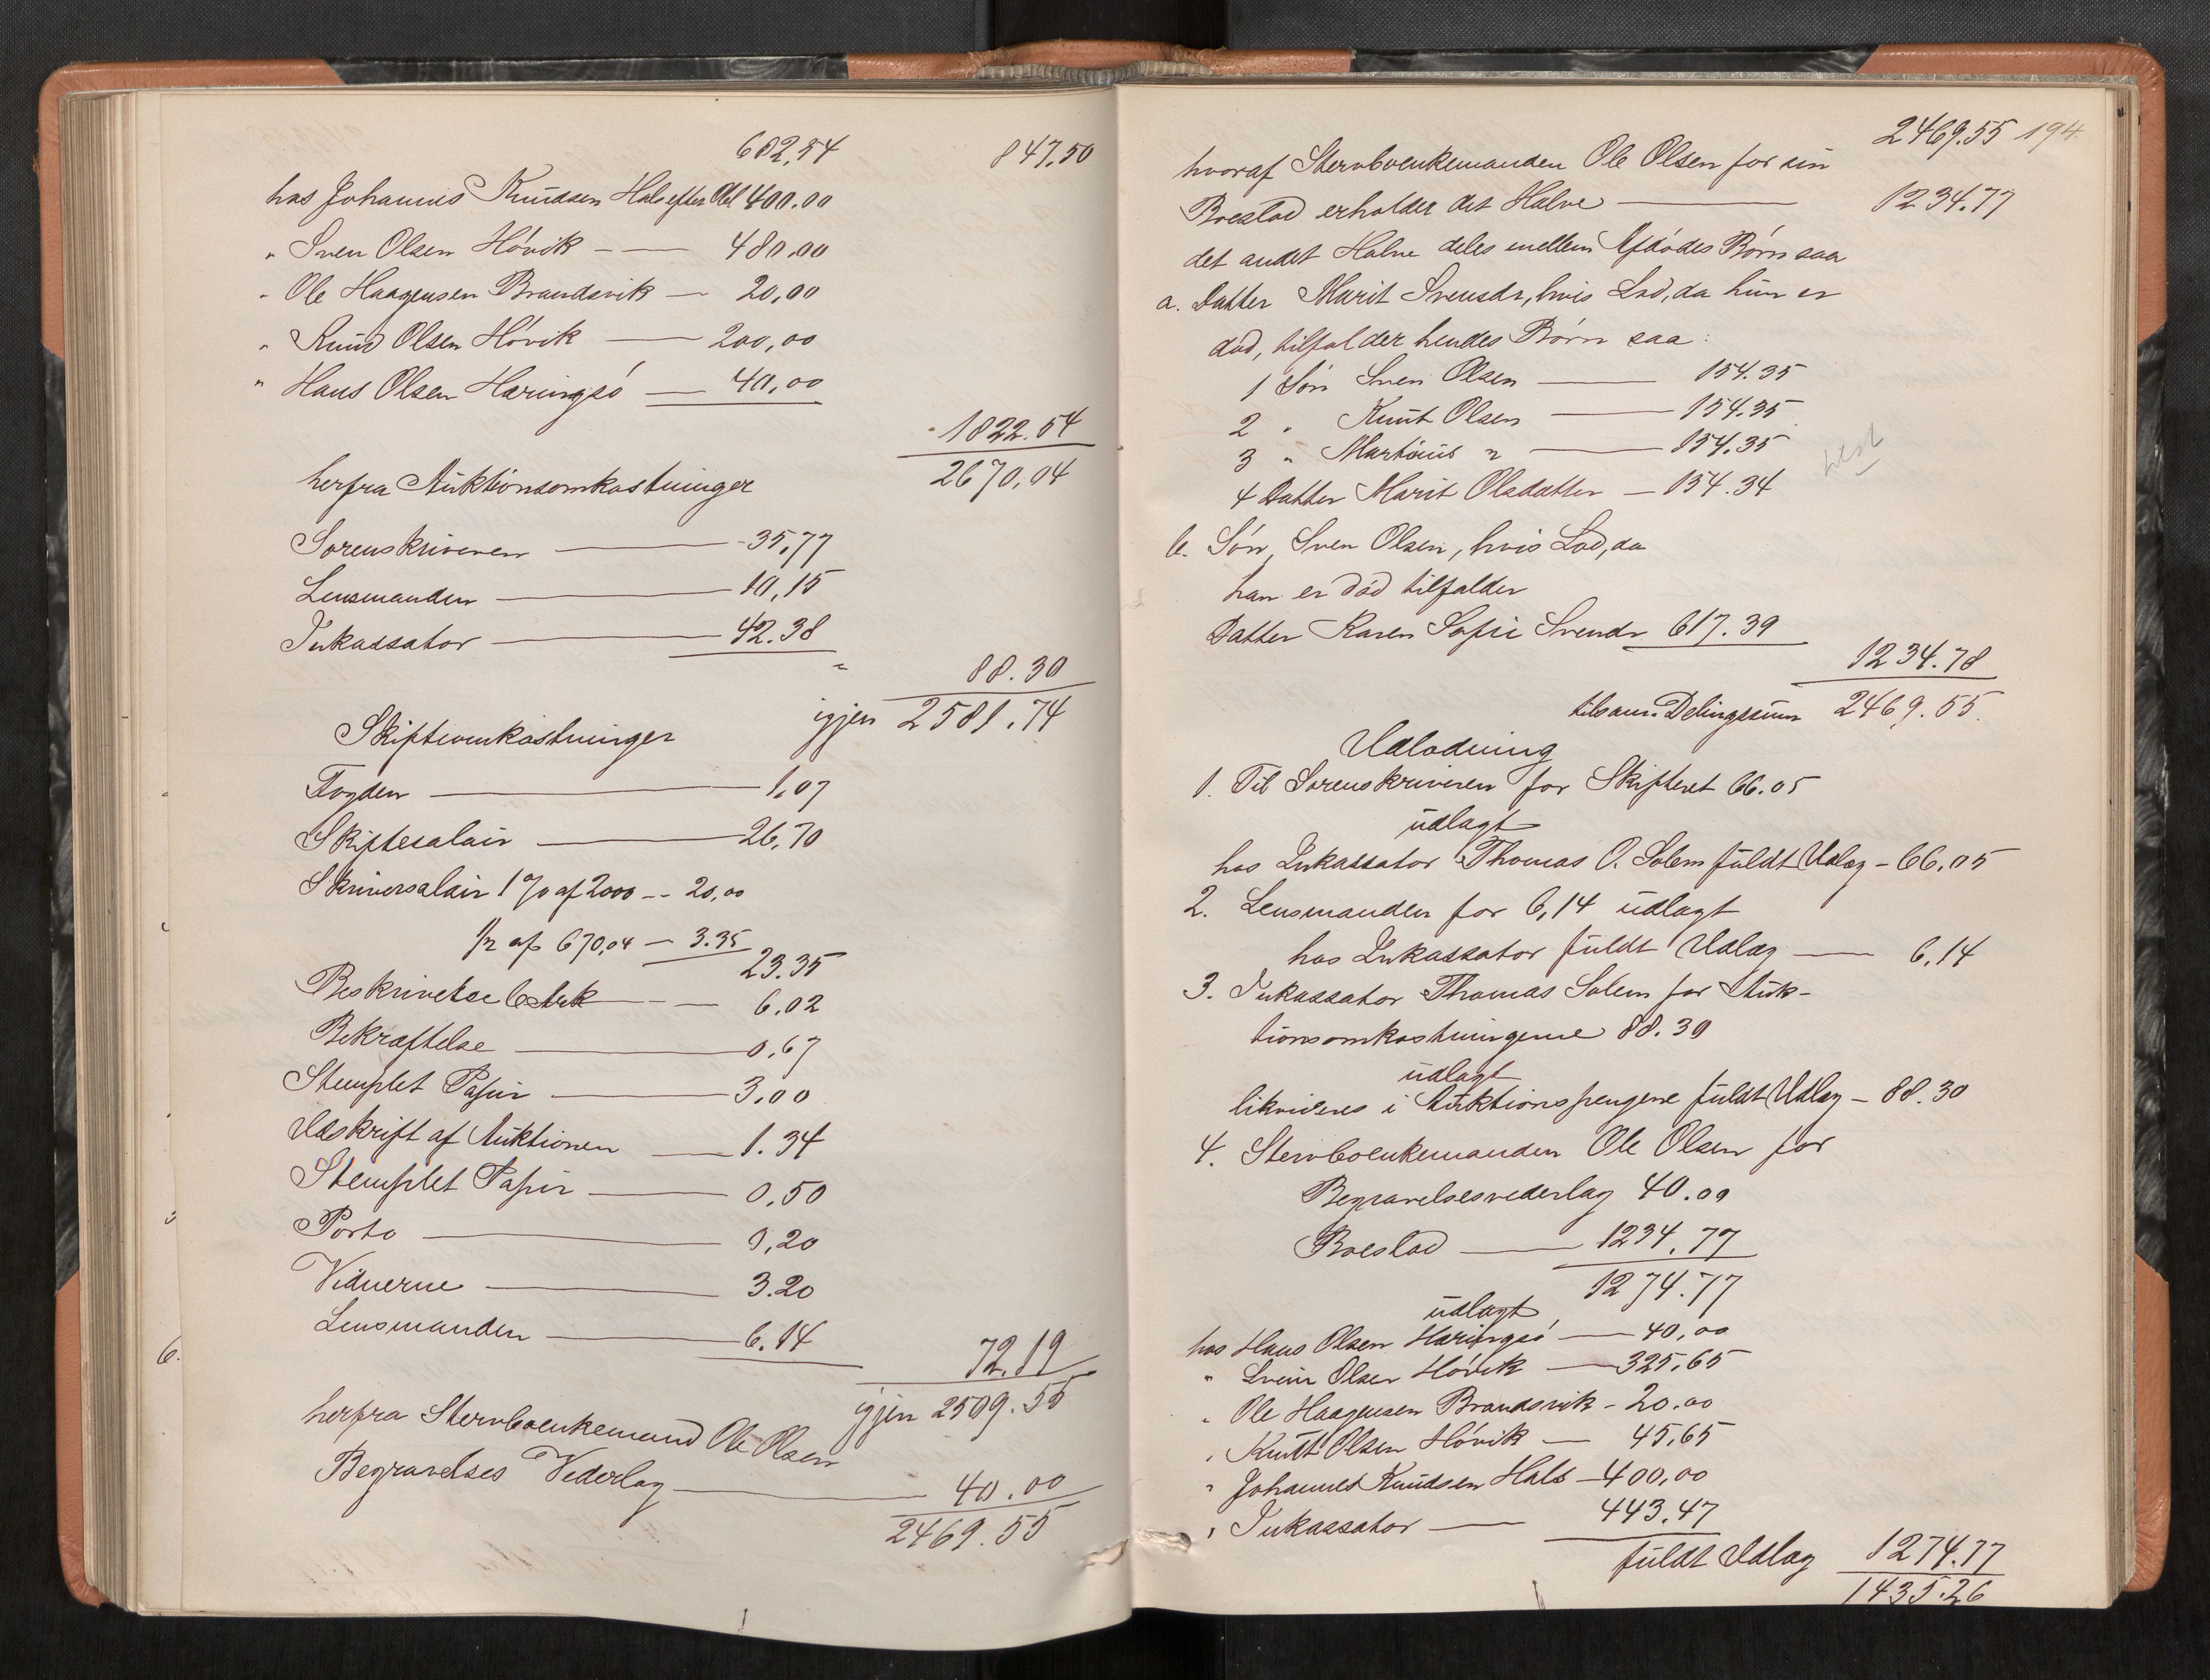 682,54 847,50
hos Johannes Knudsen Hals efter Obl 400.00
" Sven Olsen Hóvik — 480,00
" Ole Haagensen Brandsvik — 20,00
" Knud Olsen Hóvik — 200,00
" Hans Olsen Haringsó — 40,00
1822.54
2670,04
herfra Auktionsomkostninger
Sorenskriveren — 35,77
Lensmanden — 10,15
Inkassator — 42.38
" 88.30
igjen 2581.74
Skifteomkostninger
Fogden — 1,07
Skiftesalair — 26,70
Skriversalair 1 % af 2000 -- 20,00
½ af 670,04 — 3.35
23.35
Beskrivelse 6 Ark — 6.02
Bekræftelse — 0.67
Stemplet Papir — 3,00
Udskrift af Auktionen — 1.34
Stemplet Papir — 0,50
Porto — 0,20
Vidnerne — 3.20
Lensmanden — 6.14
72.19
igjen 2509.55
herfra Stervboenkemand Ole Olsen
Begravelses Vederlag — 40.00
2469.55
2469.55 194
hvoraf Stervboenkemanden Ole Olsen for sin
Boeslod erholder det Halve — 1234.77
det andet Halve deles mellem Afdódes Børn saa
a. Datter Marit Svensdr, hvis Lod, da hun er
dód, tilfalder hendes Børn saa:
1 Són Sven Olsen — 154.35
2 " Knut Olsen — 154.35
3 " Martinus " — 154.35
4 Datter Marit Olsdatter — 154.34
b. Són, Sven Olsen, hvis Lod, da
han er dód tilfalder
Datter Karen Sofie Svendr 617.39
1234.78
tilsam. Delingssum 2469.55.
Udlodning
1. Til Sorenskriveren for Skiftet 66.05
udlagt
hos Inkassator Thomas O. Solem fuldt Udlæg - 66,05
2. Lensmanden for 6,14 udlagt
hos Inkassator fuldt Udlæg — 6,14
3. Inkassator Thomas Solem for Auk-
tionsomkostningerne 88.30
udlagt
likvideres i Auktionspengene fuldt Udlæg - 88.30
4. Stervboenkemanden Ole Olsen for
Begravelsesvederlag 40.00
Boeslod — 1234.77
1274.77
udlagt
hos Hans Olsen Haringsó — 40,00
" Svein Olsen Hóvik — 325,65
" Ole Haagensen Brandsvik - 20.00
" Knutt Olsen Hóvik — 45,65
" Johannes Knudsen Hals - 400,00
" Inkassator — 443.47
fuldt Udlæg 1274.77
1435.26